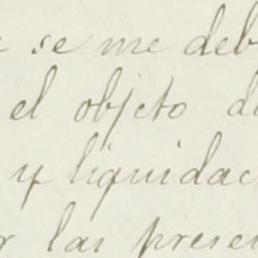 e se me deb
el objeto de
y liquidac
r las presen